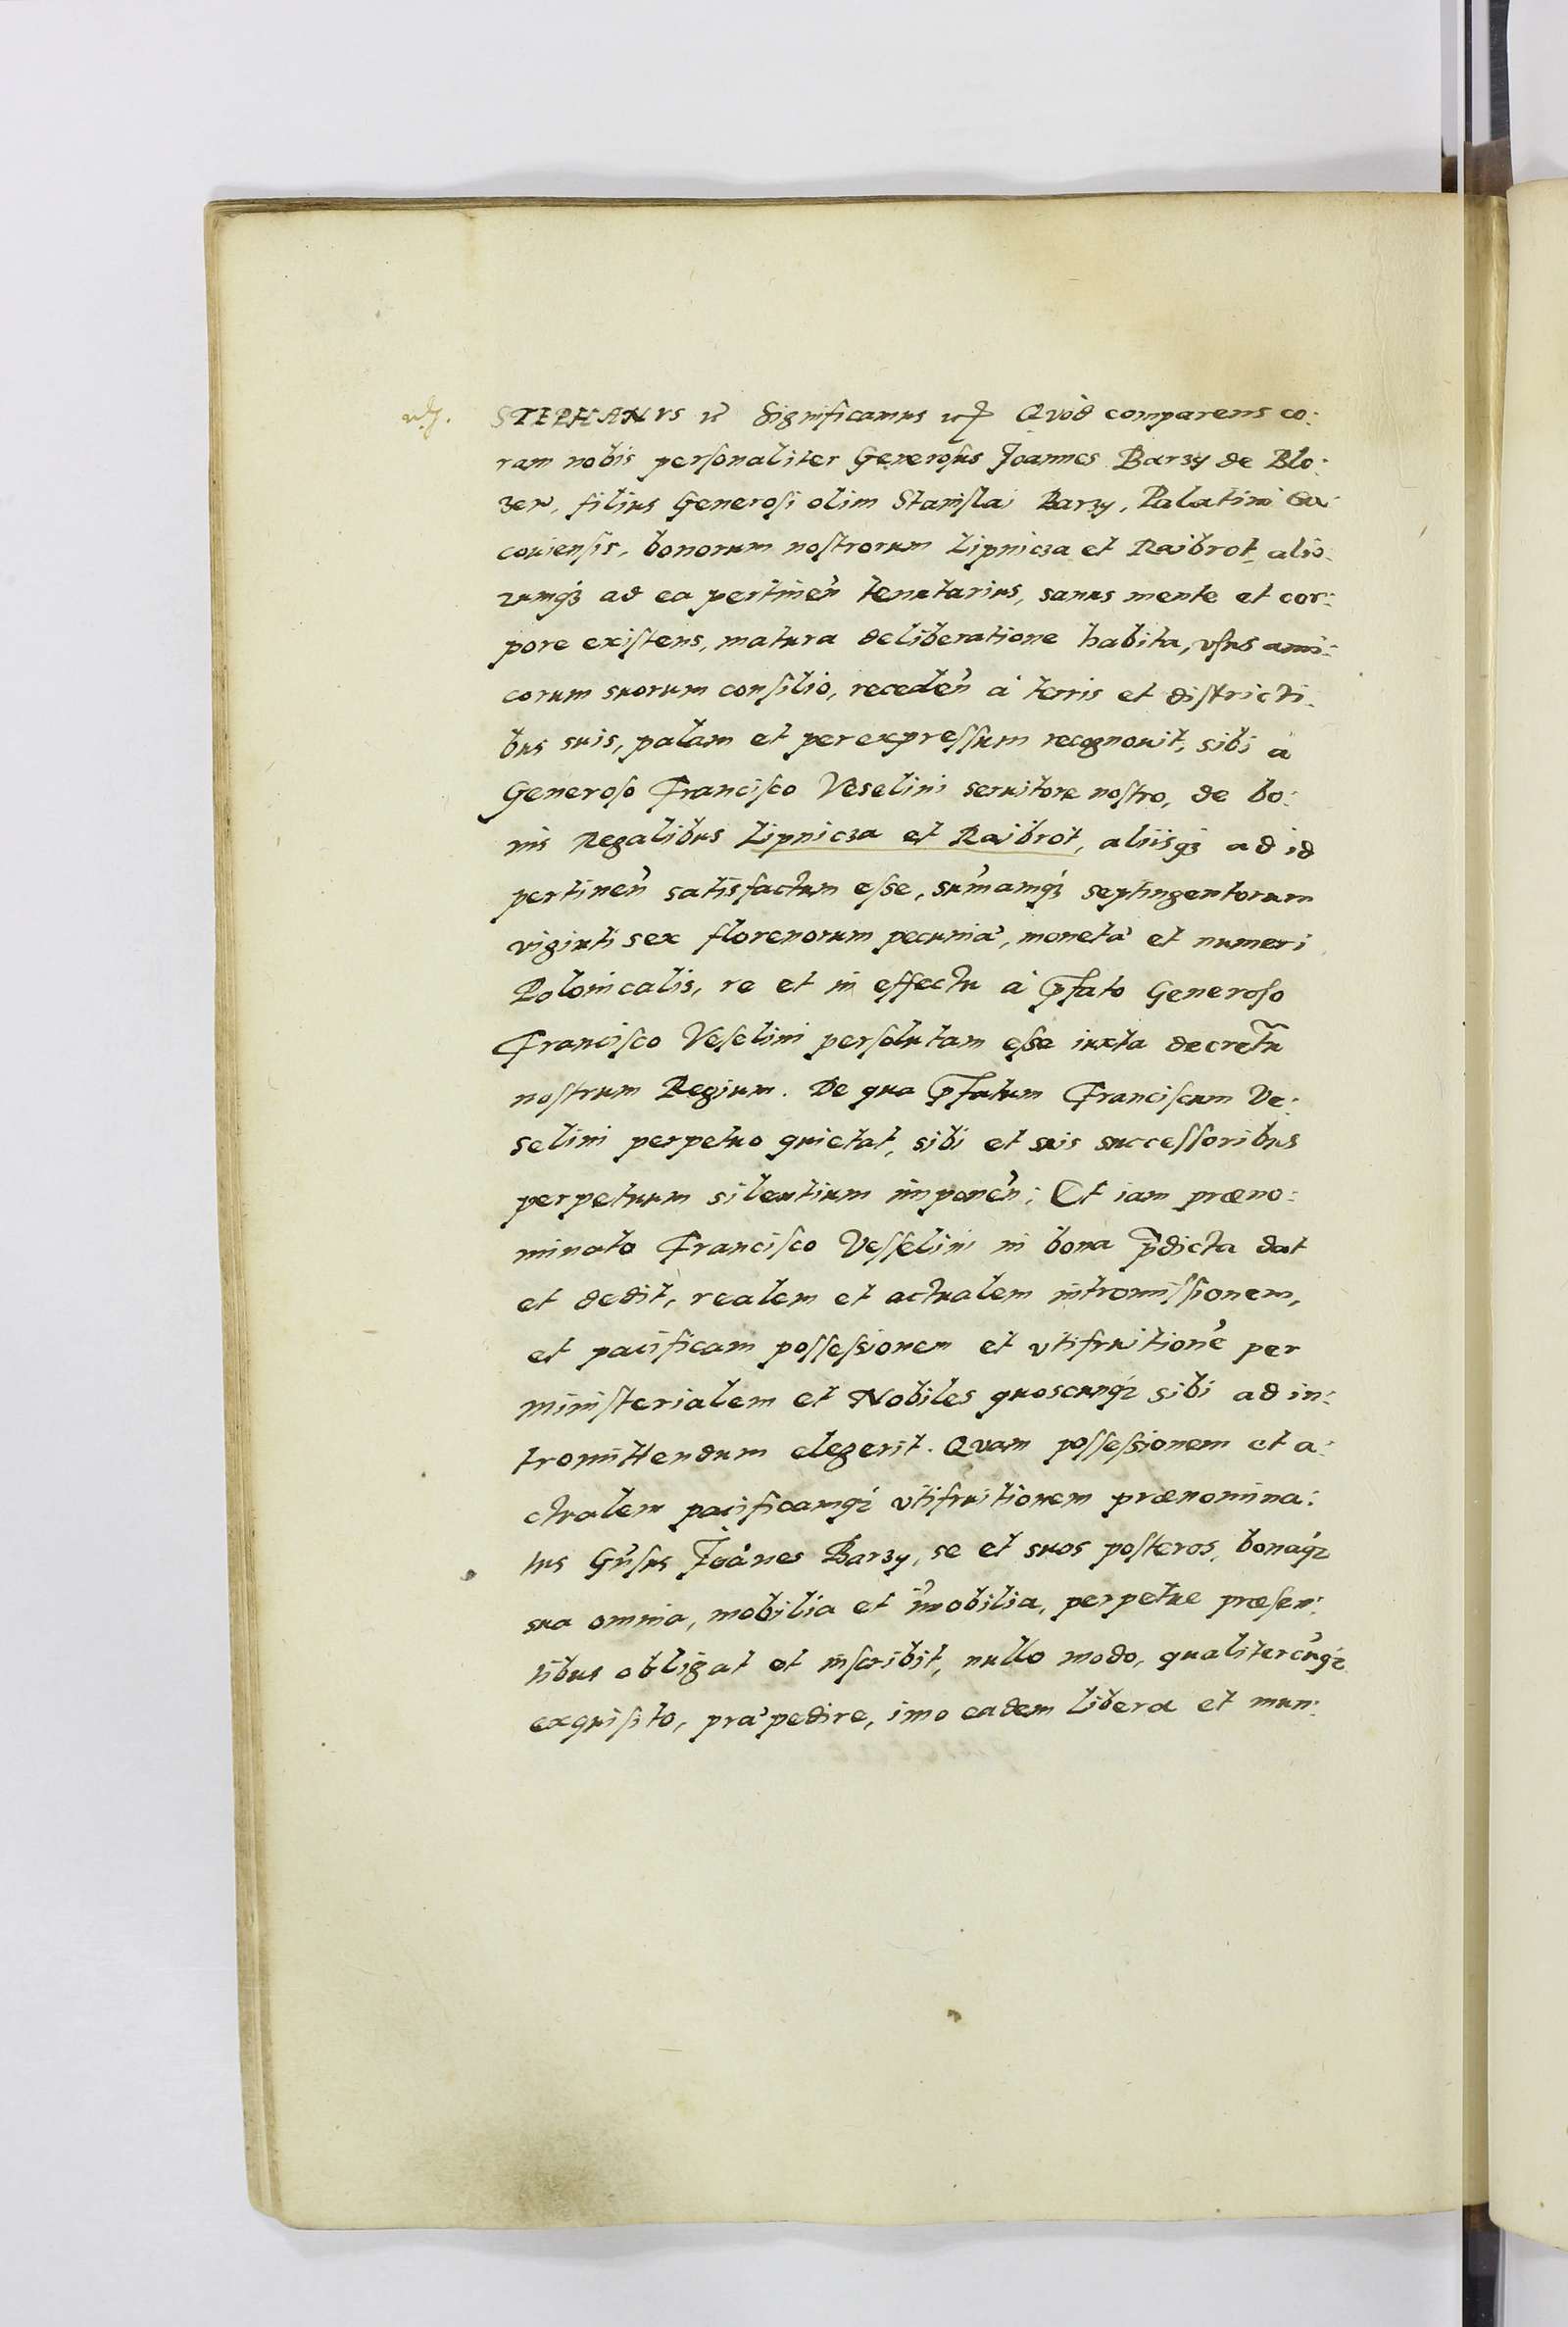 STEPHANVS Significamus Quòd comparens co:
ram nobis personaliter Generosus Joannes Barzy de Blo:
zew, filius Generosi olim Stanislai Barzy, Palatini Cra
couiensis, bonorum nostrorum Lipnicza et Raibrot, alio:
rumq3 ad ea pertineñ tenutarius, sanus mente et cor:
pore existens, matura deliberatione habita, vsus ami:
corum suorum consilio, recedeñ à terris et districti:
bus suis, palam et per expressum recognouit, sibi à
Generoso Francisco Veselini seruitore nostro, de bo:
nis Regalibus Lipnicza et Raibrot, aliisq3 ad id
pertineñ satisfactum esse, sum̃amq3 septingentorum
viginti sex florenorum pecuniæ, monetæ et numeri
Polonicalis, re et in effectu à p̃fato Generoso
Francisco Veselini persolutam esse iuxta decretũ
nostrum Regium. De qua p̃fatum Franciscum Ve:
selini perpetuo quietat, sibi et suis successoribus
perpetuum silentium imponeñ: Et iam præno:
minato Francisco Vesselini in bona p̃dicta dat
et dedit, realem et actualem intromissionem,
et pacificam possessionem et vtifruitionẽ per
Ministerialem et Nobiles quoscunq3 sibi ad in:
tromittendum elegerit. Quam possessionem et a:
ctualem pacificamq3 vtifruitionem prænomina:
tus Gñsus Joãnes Barzy, se et suos posteros, bonaq3
sua omnia, mobilia et im̃obilia, perpetue præsen:
tibus obligat et inscribit, nullo modo, qualitercũq3
exquisito, præpedire, imo eadem libera et mun: